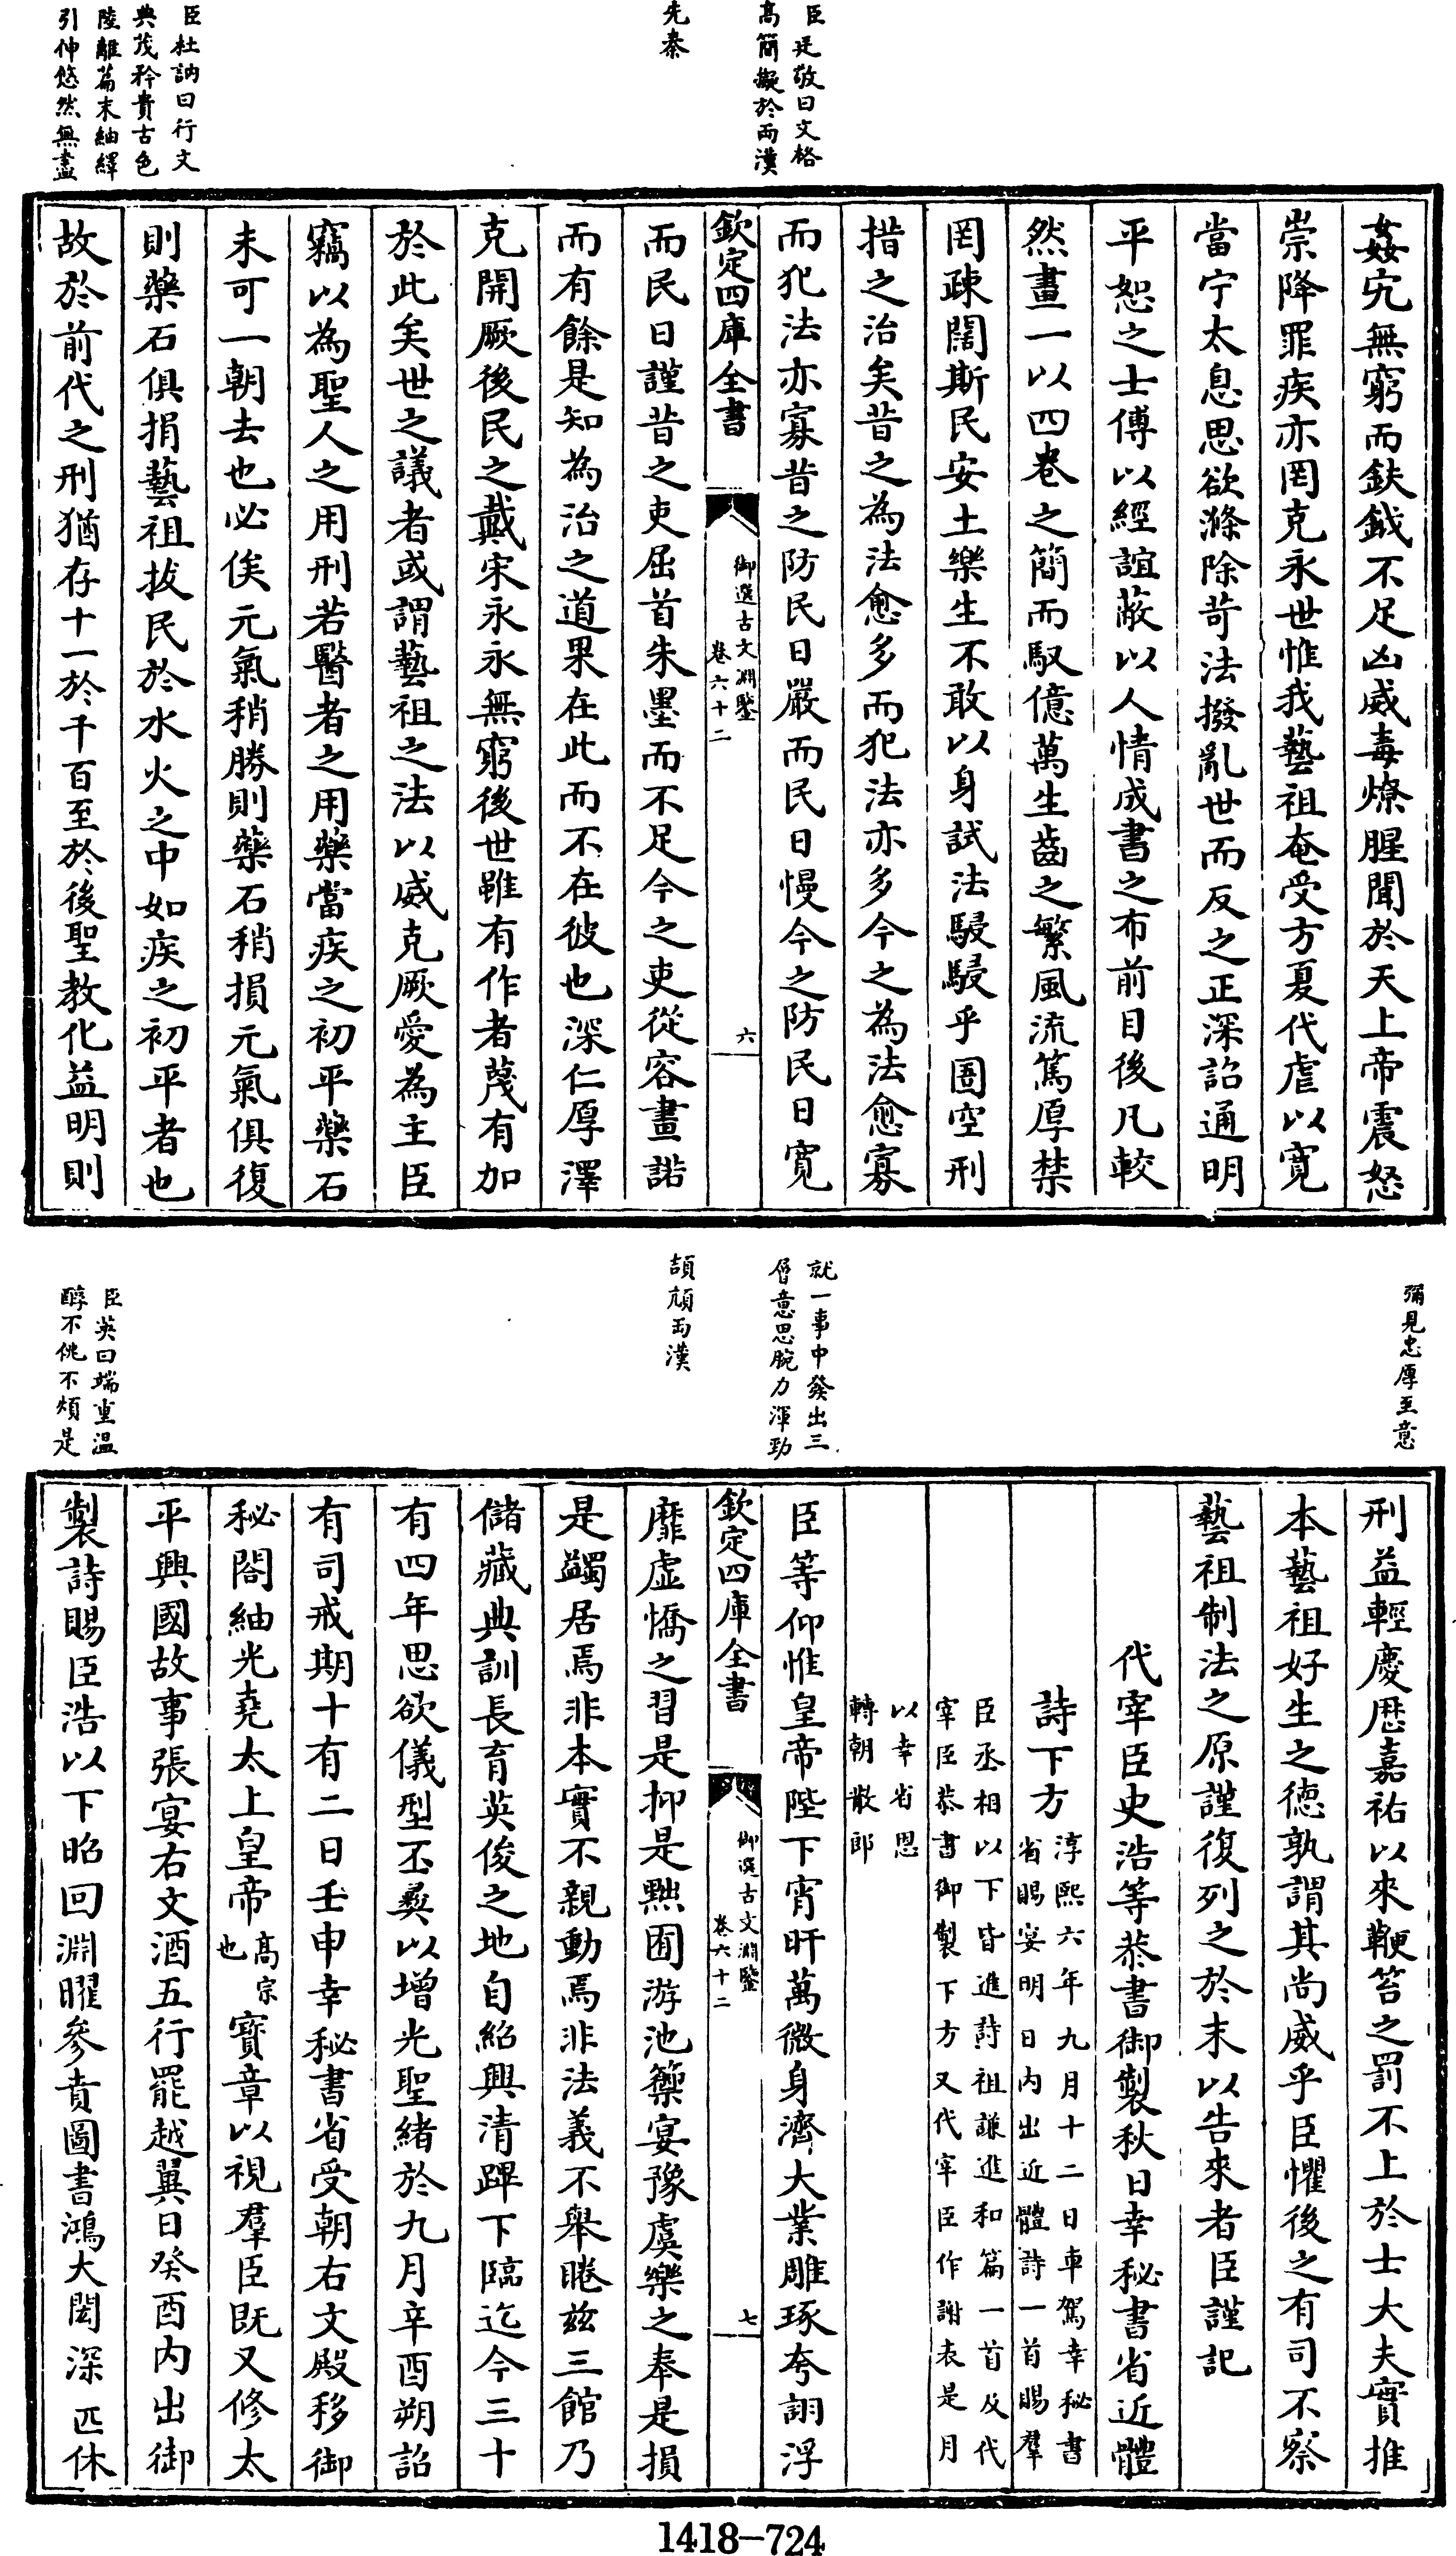 臣廷敬曰文格
高簡擬於兩漢
先秦
臣杜訥曰行文
典茂矜貴古色
陸離篇末紬繹
引伸悠然無盡
姦宄無窮而鈇鉞不足凶威毒燎腥聞於天上帝震怒
崇降罪疾亦罔克永世惟我藝祖奄受方夏代虐以寛
當宁太息思欲滌除苛法撥亂世而反之正深詔通明
平恕之士傅以經誼蔽以人情成書之布前目後凡較
然畫一以四卷之簡而馭億萬生齒之繁風流篤厚禁
罔疎闊斯民安土樂生不敢以身試法駸駸乎圄空刑
措之治矣昔之為法愈多而犯法亦多今之為法愈寡
而犯法亦寡昔之防民日嚴而民日慢今之防民日寛
欽定四庫全書
御選古文淵鑒
卷六十二
六
而民日謹昔之吏屈首朱墨而不足今之吏從容畫諾
而有餘是知為治之道果在此而不在彼也深仁厚澤
克開厥後民之戴宋永永無窮後世雖有作者蔑有加
於此矣世之議者或謂藝祖之法以威克厥愛為主臣
竊以為聖人之用刑若醫者之用藥當疾之初平藥石
未可一朝去也必俟元氣稍勝則藥石稍損元氣俱復
則藥石俱捐藝祖拔民於水火之中如疾之初平者也
故於前代之刑猶存十一於千百至於後聖教化益明則
彌見忠厚至意
就一事中發出三
層意思腕力渾勁
頡頏兩漢
臣英曰端重溫
醇不佻不煩是
刑益輕慶歴嘉祐以來鞭笞之罰不上於士大夫實推
本藝祖好生之徳孰謂其尚威乎臣懼後之有司不察
藝祖制法之原謹復列之於末以告來者臣謹記
代宰臣史浩等恭書御製秋日幸秘書省近體
詩下方
淳熙六年九月十二日車駕幸秘書
省賜宴明日内出近體詩一首賜羣
臣丞相以下皆進詩祖謙進和篇一首及代
宰臣恭書御製下方又代宰臣作謝表是月
以幸省恩
轉朝散郎
臣等仰惟皇帝陛下宵旰萬微身濟大業雕琢夸詡浮
欽定四庫全書
御選古文淵鑒
卷六十二
七
靡虛憍之習是抑是黜囿游池籞宴豫虞樂之奉是損
是蠲居焉非本實不親動焉非法義不舉睠兹三館乃
儲藏典訓長育英俊之地自紹興清蹕下臨迄今三十
有四年思欲儀型丕彞以增光聖緒於九月辛酉朔詔
有司戒期十有二日壬申幸秘書省受朝右文殿移御
秘閣紬光堯太上皇帝
高宗
也
寳章以視羣臣既又修太
平興國故事張宴右文酒五行罷越翼日癸酉内出御
製詩賜臣浩以下昭回淵曜參賁圖書鴻大閎深匹休
1418-724